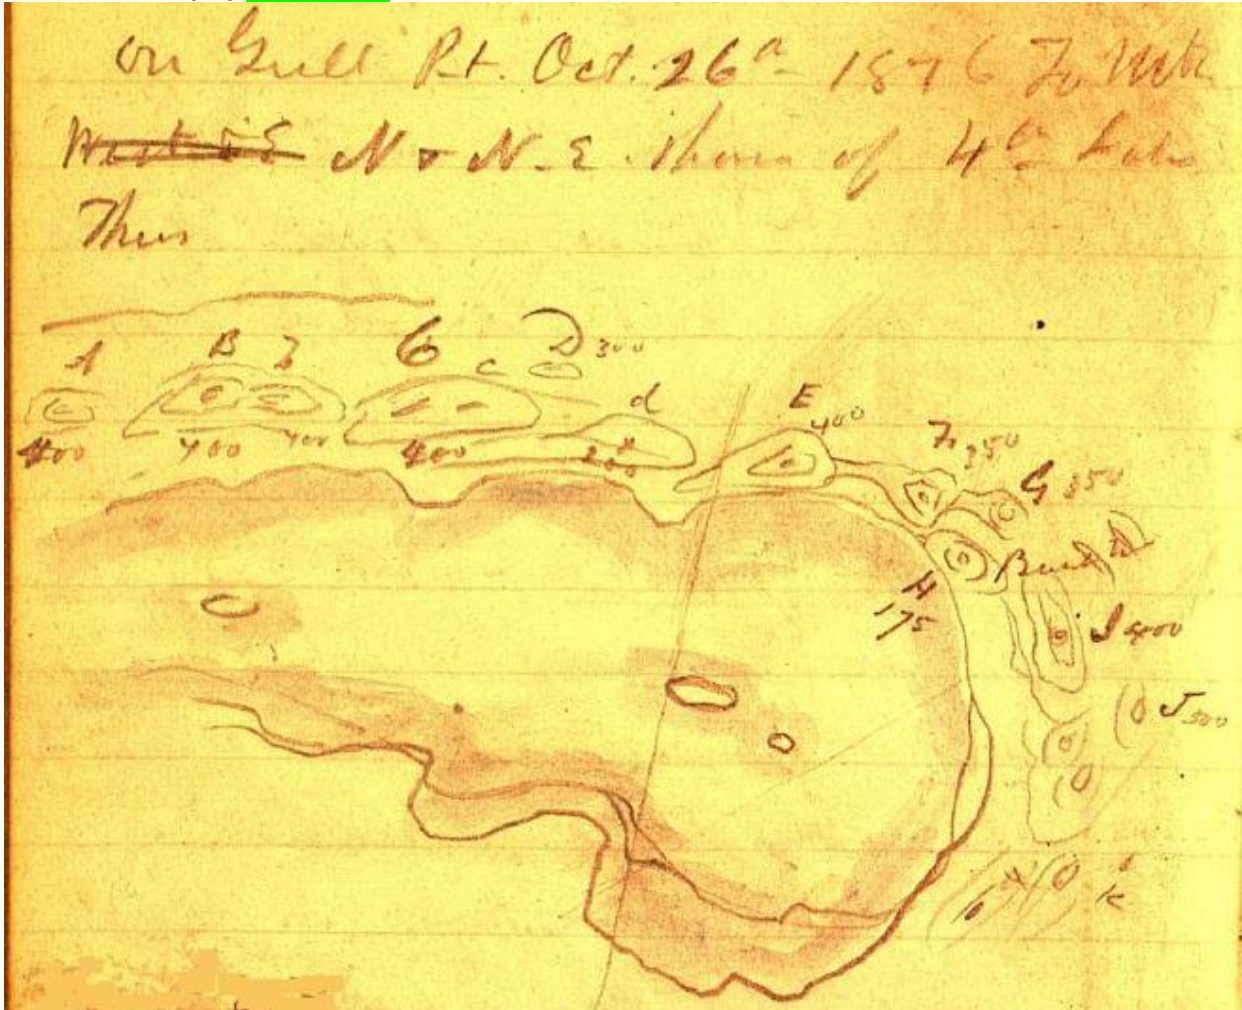 on Gull Pt. Oct. 26th 1876 To
N & N.E. shore of 4th Lake
Thus
A B b C c D 300
400 400 400 400 d 200
E 400
F 350
G 350
H
175
I 400
J 500
K